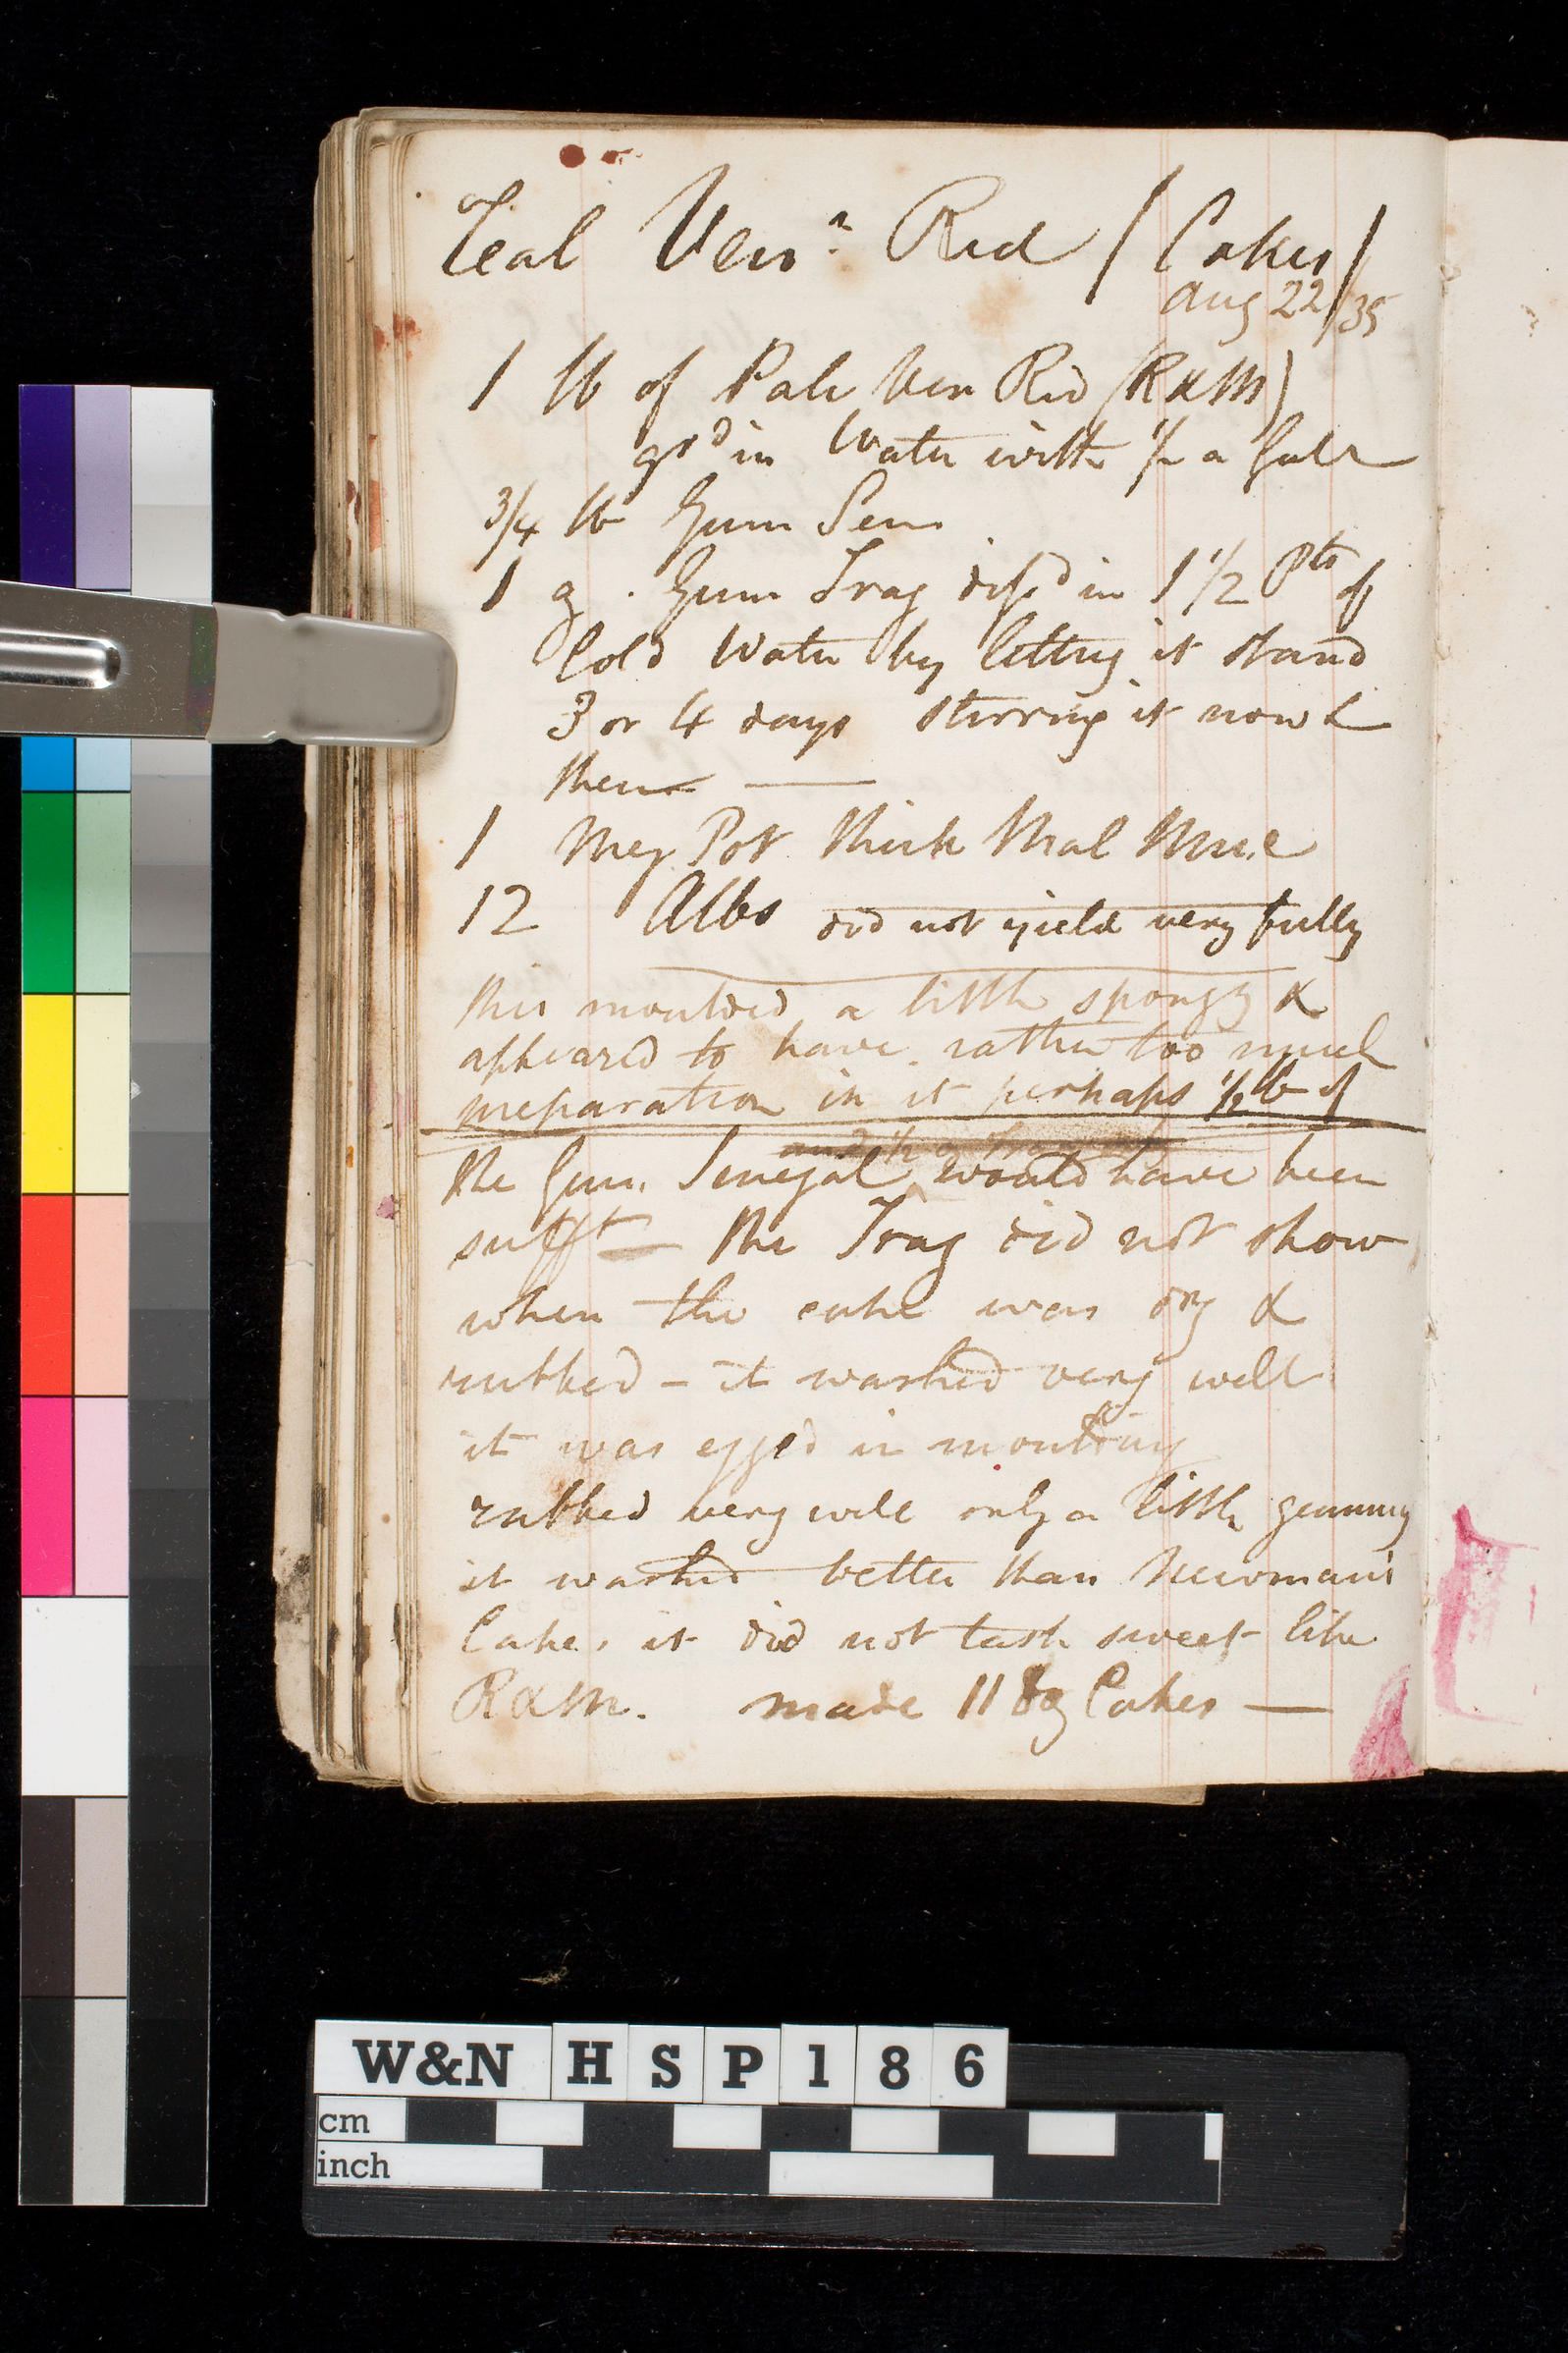 Teal Venn. Red / Cakes /
Aug 22/35
1 lb of Pale Ven Red (R&M)
grd in Water with 1/2 a Gall
3/4 lb Gum Sen
1 Gum Trag dissd in 1 1/2 Pts of
Cold Water by letting it stand
3 or 4 days stirring it now &
then —
1 Meg Pot thick
12 Albs did not yield very fully
this moulded a little spongy &
appeared to have rather too much
preparation in it perhaps 1/2 lb of
the Gum Senegal would have been
sufft — the Trag did not show
when the cake was dry &
rubbed - it washed very well
it was egged in moulding
rubbed very well only a little gummy
it washed better than Newman's
Cake, it did not taste sweet like
R&M. made 118 Cakes —
W&N HSP186
cm
inch